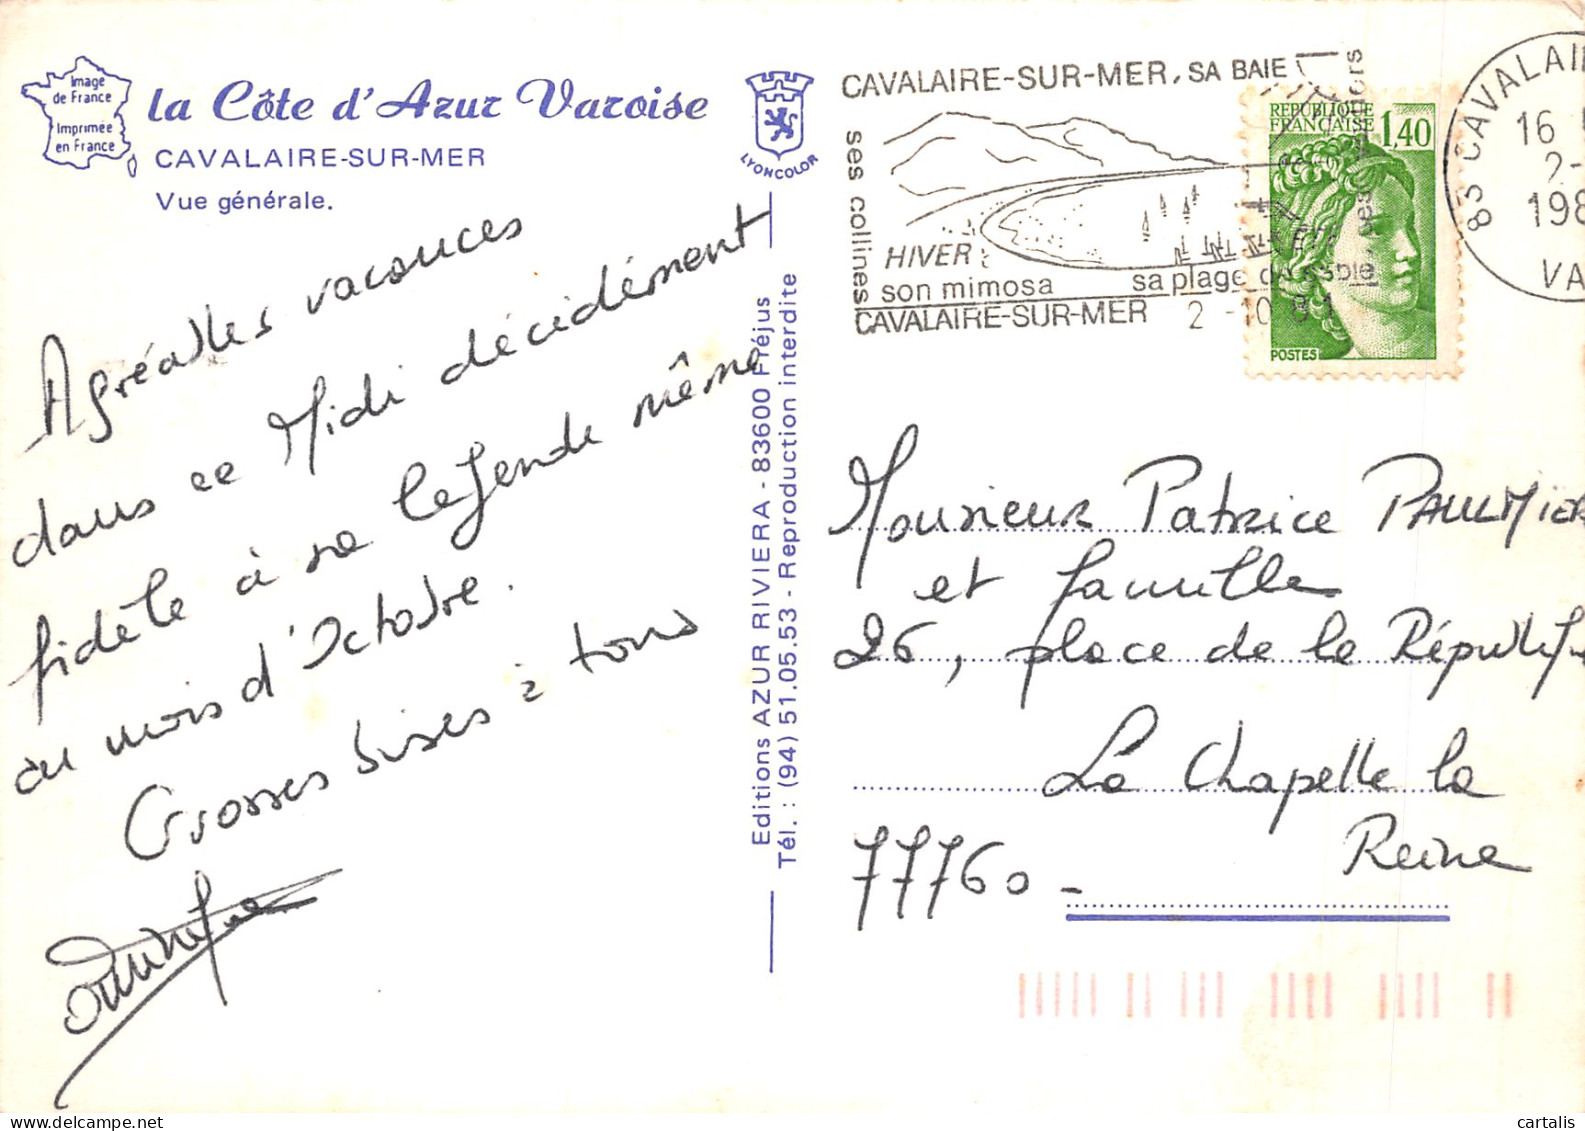 Image
de France
Imprimée
en France
la Côte d'Azur Varoise
CAVALAIRE-SUR-MER
Vue générale.
LYONCOLOR
Agréables vacances
dans ce Midi décidément
fidèle à sa légende même
au mois d'Octobre.
Grosses bises à tous
Editions AZUR RIVIERA - 83600 Fréjus
Tél. : (94) 51.05.53 - Reproduction interdite
CAVALAIRE-SUR-MER, SA BAIE
ses collines
HIVER
son mimosa
sa plage de sable,
CAVALAIRE-SUR-MER
2 -10 81
REPUBLIQUE
FRANÇAISE 1,40
POSTES
83 CAVALAI
16
2-
198
VA
Monsieur Patrice PAULMIER
et famille
26, place de la Républi
La Chapelle la
Reine
77760 -
delcampe.net
cartalis